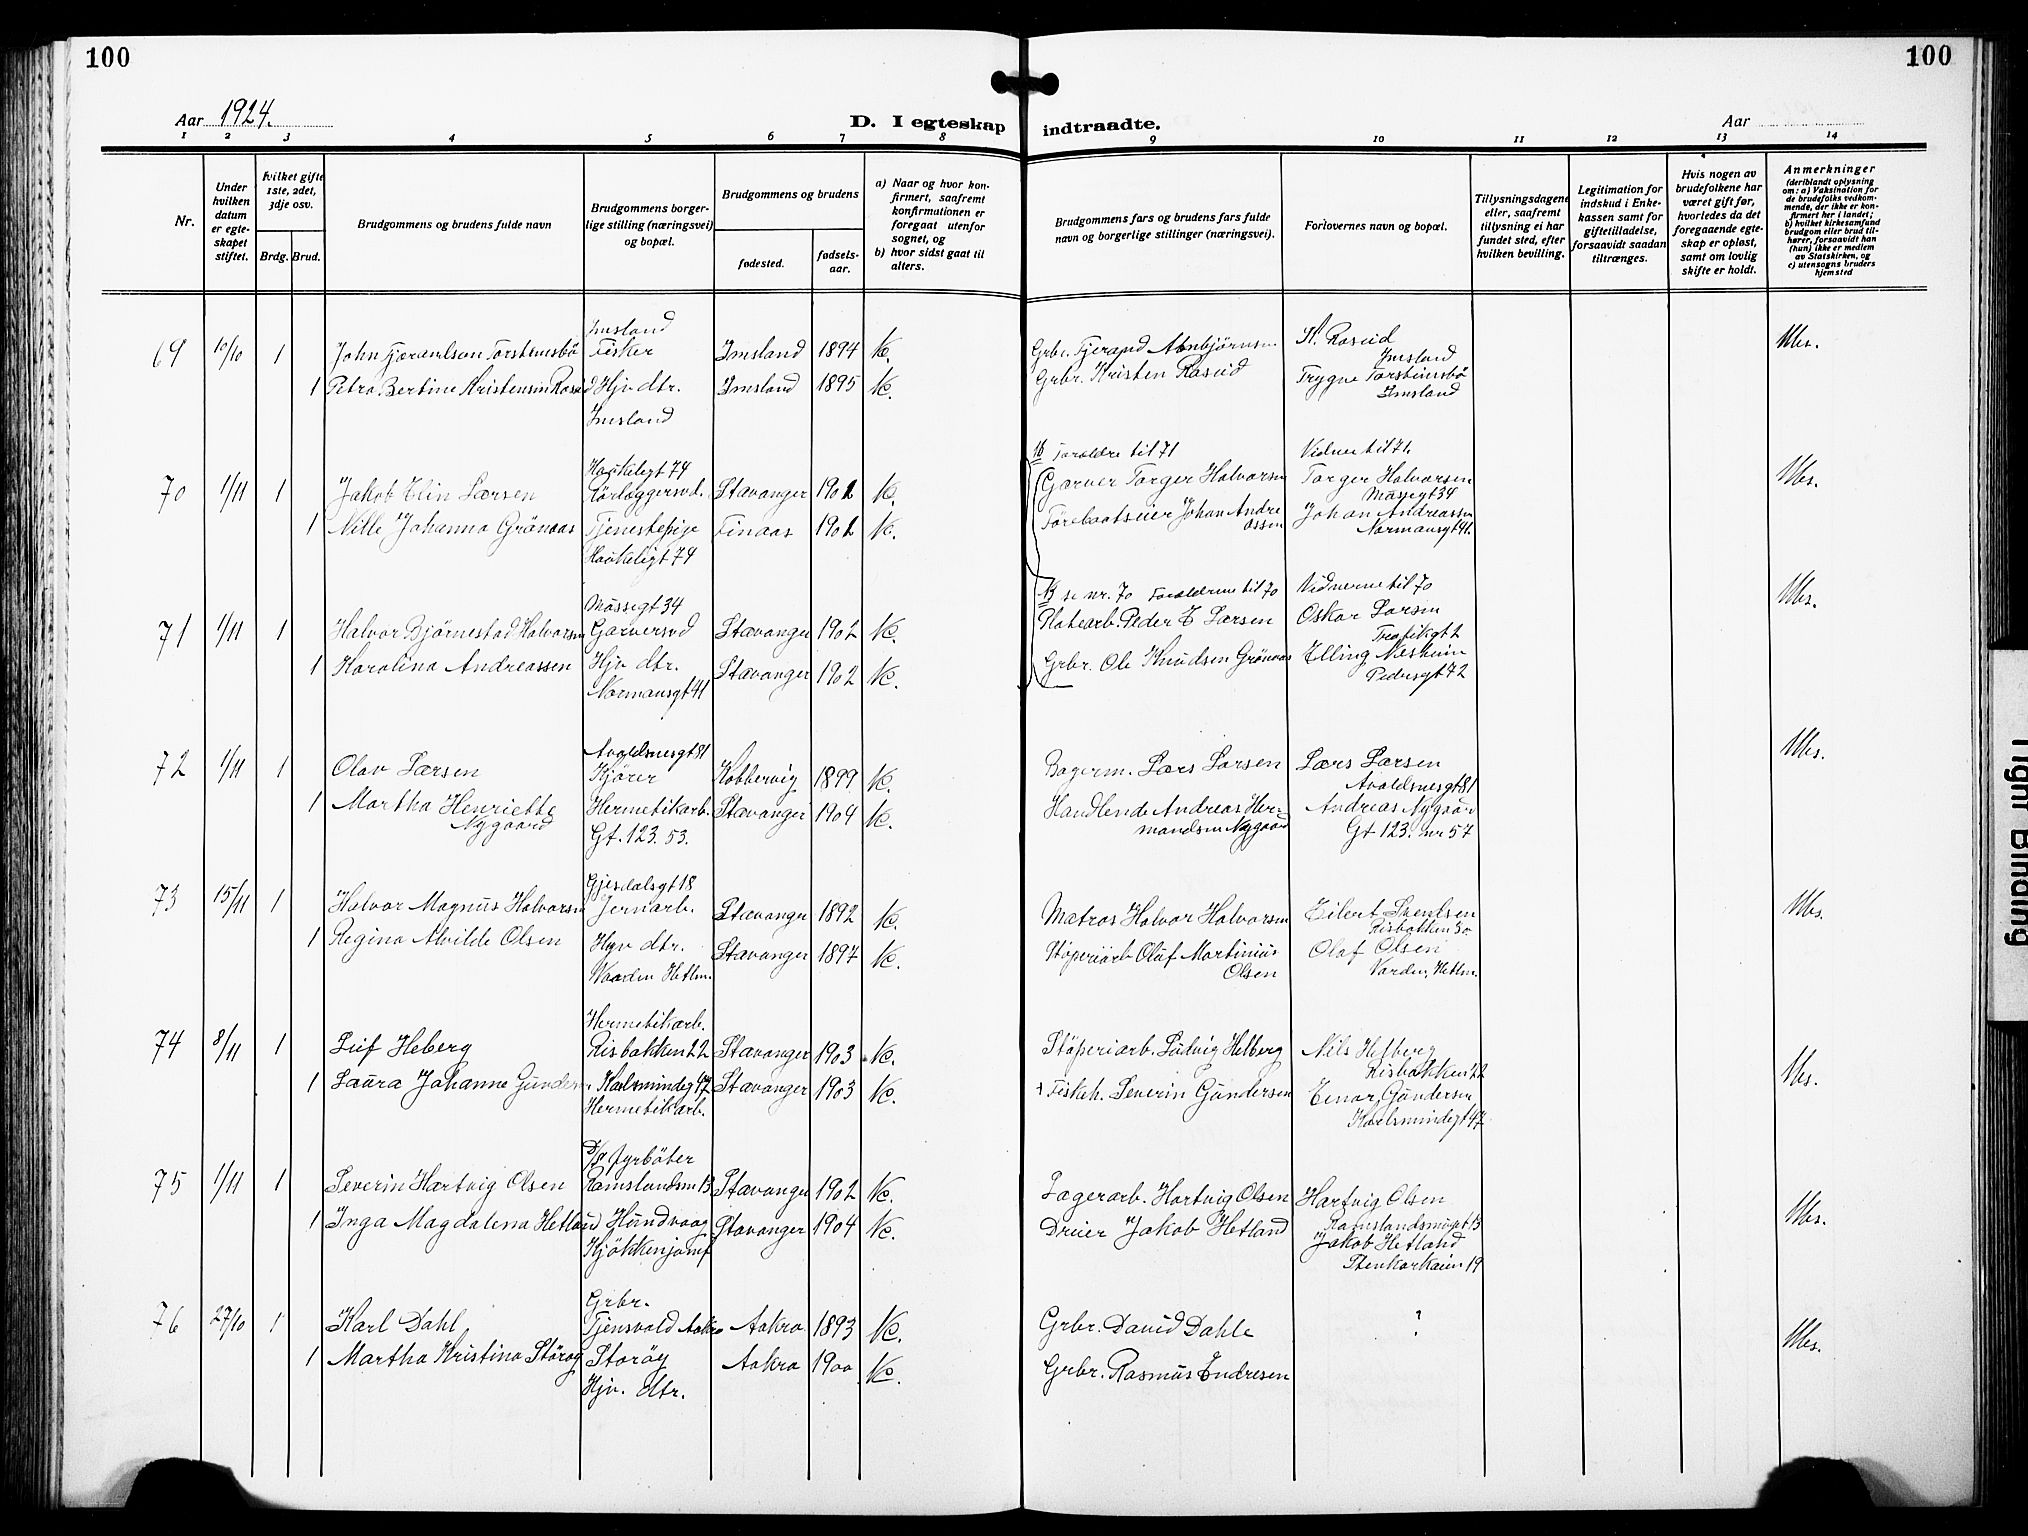 100
100
Aar 1924.
D. I egteskap indtraadte.
Aar
1 2 3 4 5 6 7 8 9 10 11 12 13 14
Nr.
Under hvilken datum er egteskapet stiftet.
hvilket gifte 1ste, 2det, 3dje osv.
Brdg. Brud.
Brudgommens og brudens fulde navn
Brudgommens borgerlige stilling (næringsvei) og bopæl.
Brudgommens og brudens
fødested.
fødselsaar.
a) Naar og hvor konfirmert, saafremt konfirmationen er foregaat utenfor sognet, og
b) hvor sidst gaat til alters.
Brudgommens fars og brudens fars fulde navn og borgerlige stillinger (næringsvei).
Forlovernes navn og bopæl.
Tillysningsdagene eller, saafremt tillysning ei har fundet sted, efter hvilken bevilling.
Legitimation for indskud i Enkekassen samt for giftetilladelse, forsaavidt saadan tiltrænges.
Hvis nogen av brudefolkene har været gift før, hvorledes da det foregaaende egteskap er opløst, samt om lovlig skifte er holdt.
Anmerkninger
(deriblandt oplysning om: a) Vaksination for de brudefolks vedkommende, der ikke er konfirmert her i landet; b) hvilket kirkesamfund brudgom eller brud tilhører, forsaavidt han (hun) ikke er medlem av Statskirken, og c) utensogns bruders hjemsted
Imsland
69 10/10 1 Torstensbö Fisker Imsland 1894 Grbr. Tjerand
St. Rosseid
Imsland
1 Petra Bertine Kristensen Hjv. dtr. Imsland 1895 Grbr. Kristen Trygve Torstensbö
Imsland
Imsland
Foraldre til 71 Vidner til 71.
Haukeligt 74
70 1/11 1 Jakob Elin Larsen Rörlæggersvd. Stavanger 1902 Garver Torger Halvorsen Torger Halvorsen
Møssegt 34
1 Nille Johanna Grönaas Tjenestepige Finaas 1902 Förebaatseier Johan Andreassen Johan Andreassen
Normansgt 41.
Haukeligt 74
se nr. 70 Foraldrene til 70 Vidnerne til 70
Møssegt 34
71 1/11 1 Halvor Björnestad Halvorsen Garversvd Stavanger 1902 Platearb. Peder E Larsen Oskar Larsen
1 Karolina Andreassen Hjv. dtr. Stavanger 1902 Grbr. Ole Knudsen Grönaas Elling Næsheim
Normansgt 41 Pedersgt 72
Avaldsnesgt 81
72 1/11 1 Olav Larsen Kjörer Kobbervig 1899 Bagerm. Lars Larsen Lars Larsen
Avaldsnesgt 81
1 Martha Henriette Nygaard Hermetikarb. Stavanger 1904 Handlende Andreas Hermandsen Nygaard Andreas Nygaard
Gt. 123. 53. Gt 123. nr 57
Gjesdalsgt 18
73 15/11 1 Halvor Magnus Halvorsen Jernarb. Stavanger 1892 Matros Halvor Halvorsen Eilert Svendsen
Risbakken 30
1 Regina Alvilde Olsen Hjv dtr. Stavanger 1897 Stöperiarb Oluf Martinius Olsen Olaf Olsen
Vaarden Hetlm. Varden, Hetlm.
Hermetikarb.
74 8/11 1 Leif Heberg Risbakken 22 Stavanger 1903 Stöperiarb. Ludvig Helberg Nils Helberg
Risbakken 22
1 Laura Johanne Gundersen Karlsmindegt 47 Stavanger 1903 + Fiskeh. Severin Gundersen Einar Gundersen
Hermetikarb. Karlsmindegt 47
D/S fyrböter
75 1/11 1 Severin Hartvig Olsen Ramslandsm 13 Stavanger 1902 Lagerarb. Hartvig Olsen Hartvig Olsen
1 Inga Magdalena Hetland Hundvaag Stavanger 1904 Dreier Jakob Hetland Jakob Hetland
Kjökkenjomf Stenkarkaien 19
Grbr.
76 27/10 1 Karl Dahl Tjensvold Aakra Aakra 1893 Grbr. David Dahle ?
1 Martha Kristina Störog Storöy Aakra 1900 Grbr. Rasmus Endresen
Hjv. dtr.
Tight Binding